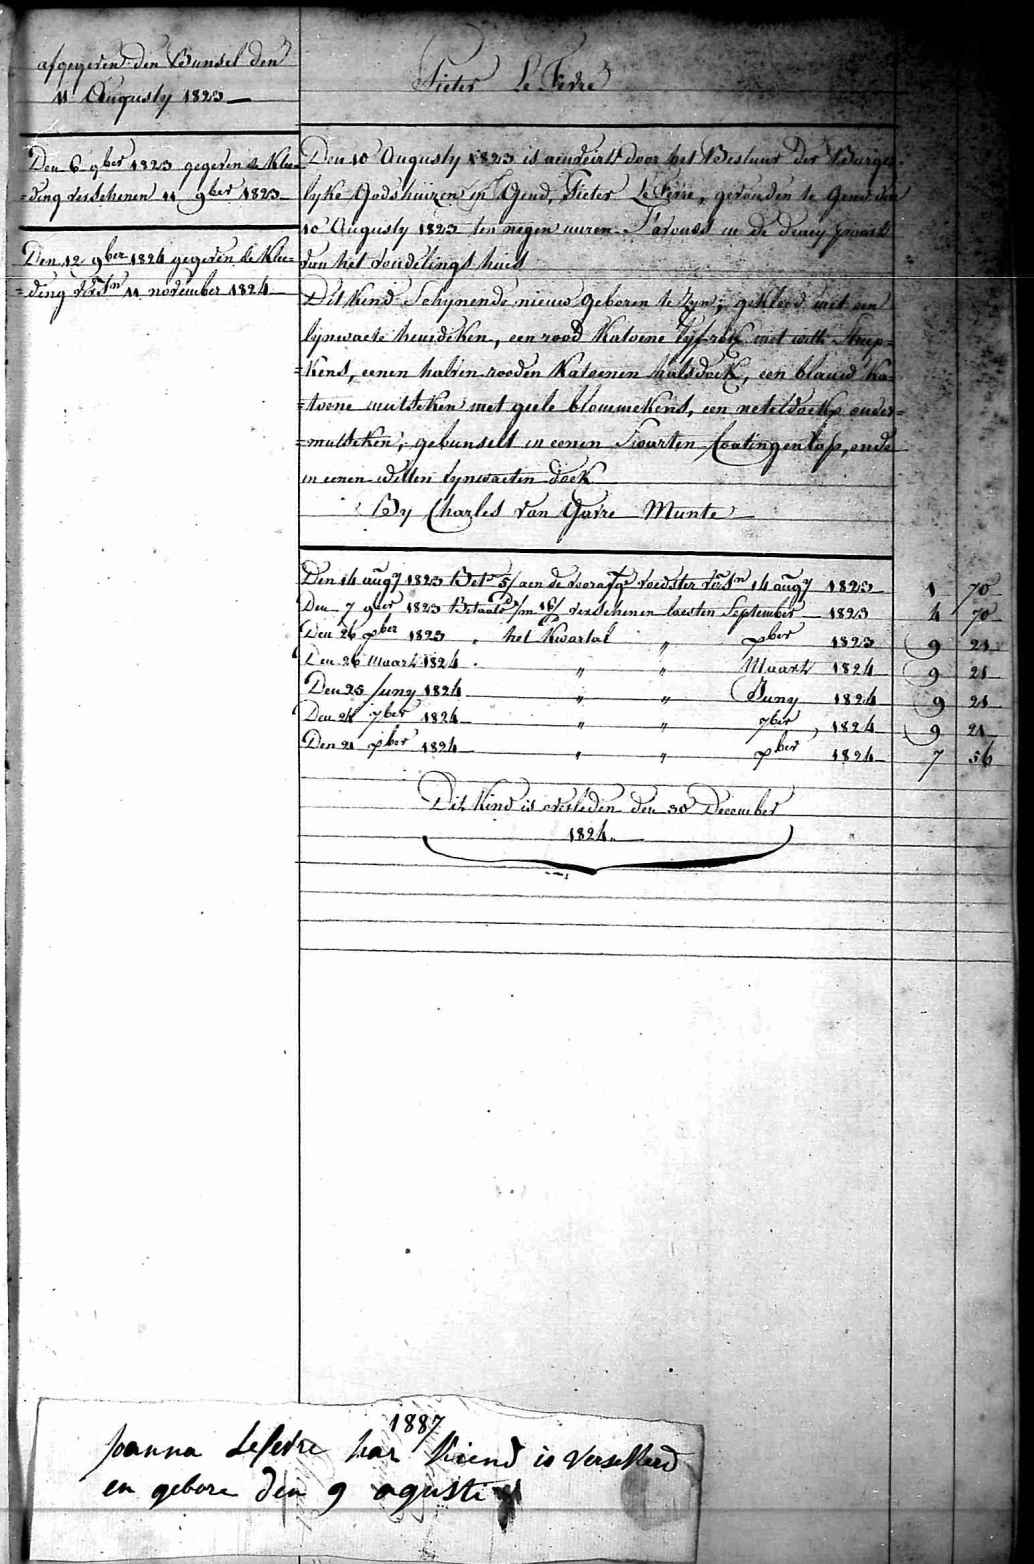 afgegeven den Bunsel den
11 Augusty 1823
Den 6 9ber 1823 gegeven de Klee=
=ding verschenen 11 9ber 1823
Den 12 9ber 1824 gegeven de Klee=
=ding 11 november 1824
Pieter Le Fevre
Den 10 Augusty 1823 is aenveird door het Bestuur der Burger
lyke Godshuizen in Gend, Pieter Le Fevre, gevonden te Gend den
10 Augusty 1823 ten negen uuren S'avonds in de draey
van het vondelings huis
Dit Kind Schynende nieuw geboren te Zyn; gekleed met een
lynwaete hemdeken, een rood Katoene lyfrok met witte Strip=
=kens, eenen halven rooden Katoenen halsdoek, een blauw Ka=
=toene mutseken met geele blommekens, een neteldoekx onder=
=mutseken; gebunselt in eenen Swarten lap, ende
in eenen witten lynwaeten doek
By Charles van Gavre Munte
Den 14 augy 1823 Bet. 5/ aen de voorafge voedster 14 augy 1823 1 70
Den 7 9ber 1823 Betaeld verschenen laesten September 1823 4 70
Den 26 xber 1823 " het Kwartal " xber 1823 9 21
Den 26 Maart 1824 " " Maart 1824 9 21
Den 25 Juny 1824 " " Juny 1824 9 21
Den 24 7ber 1824 " " 7ber 1824 9 21
Den 21 xber 1824 " " xber 1824 7 56
Dit Kind is overleden den 30 December
1824
1887
Joanna Lefevre har Kiend is versekerd
en gebore den 9 agusti